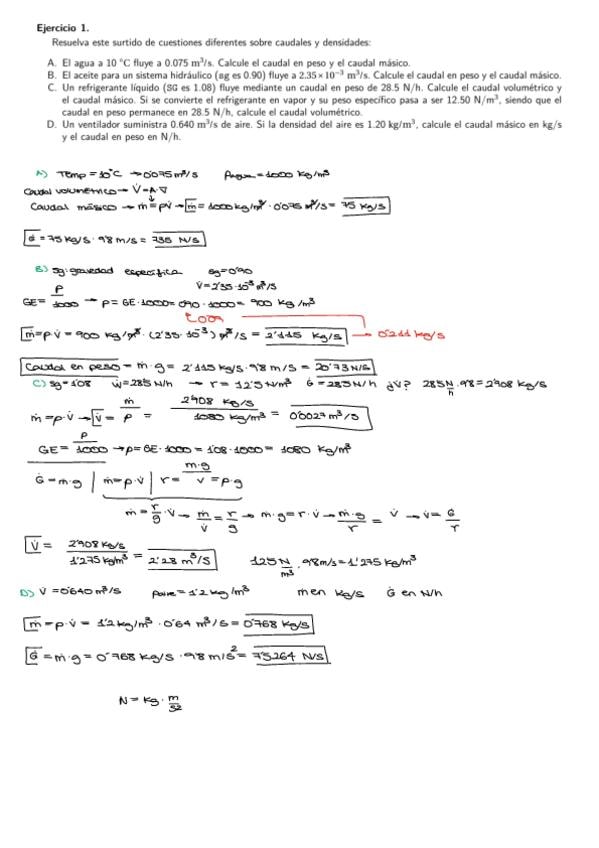 Ejercicio 1.
Resuelva este surtido de cuestiones diferentes sobre caudales y densidades:
A. El agua a 10 °C fluye a 0.075 m³/s. Calcule el caudal en peso y el caudal másico.
B. El aceite para un sistema hidráulico (sg es 0.90) fluye a 2.35×10⁻³ m³/s. Calcule el caudal en peso y el caudal másico.
C. Un refrigerante líquido (SG es 1.08) fluye mediante un caudal en peso de 28.5 N/h. Calcule el caudal volumétrico y
el caudal másico. Si se convierte el refrigerante en vapor y su peso específico pasa a ser 12.50 N/m³, siendo que el
caudal en peso permanece en 28.5 N/h, calcule el caudal volumétrico.
D. Un ventilador suministra 0.640 m³/s de aire. Si la densidad del aire es 1.20 kg/m³, calcule el caudal másico en kg/s
y el caudal en peso en N/h.
A) Temp = 10°C → 0'075 m³/s ρagua = 1000 kg/m³
Caudal volumétrico → V̇ = A·v
Caudal másico → ṁ = ρV̇ → ṁ = 1000 kg/m³ · 0'075 m³/s = 75 kg/s
Ġ = 75 kg/s · 9'8 m/s = 735 N/s
B) sg: gravedad específica sg = 0'90
V̇ = 2'35·10⁻³ m³/s
GE = ρ/1000 → ρ = GE·1000 = 0'90·1000 = 900 kg/m³
ṁ = ρ·V̇ = 900 kg/m³ · (2'35·10⁻³) m³/s = 2'115 kg/s → 0'211 kg/s
Caudal en peso = ṁ·g = 2'115 kg/s · 9'8 m/s = 20'73 N/s
C) sg = 1'08 ẇ = 28'5 N/h → r = 12'5 N/m³ Ġ = 28'5 N/h ¿V̇? 28'5 N/h · 9'8 = 2'908 kg/s
ṁ = ρ·V̇ → V̇ = ṁ/ρ = 2'908 kg/s / 1080 kg/m³ = 0'0027 m³/s
GE = ρ/1000 → ρ = GE·1000 = 1'08·1000 = 1080 kg/m³
Ġ = ṁ·g | ṁ = ρ·V̇ | r = m·g/v = ρ·g
ṁ = r/g · V̇ → ṁ/V̇ = r/g → ṁ·g = r·V̇ → ṁ·g/r = V̇ → V̇ = Ġ/r
V̇ = 2'908 kg/s / 1'275 kg/m³ = 2'28 m³/s 12'5 N/m³ · 9'8 m/s = 1'275 kg/m³
D) V̇ = 0'640 m³/s ρaire = 1'2 kg/m³ ṁ en kg/s Ġ en N/h
ṁ = ρ·V̇ = 1'2 kg/m³ · 0'64 m³/s = 0'768 kg/s
Ġ = ṁ·g = 0'768 kg/s · 9'8 m/s² = 7'5264 N/s
N = kg · m/s2